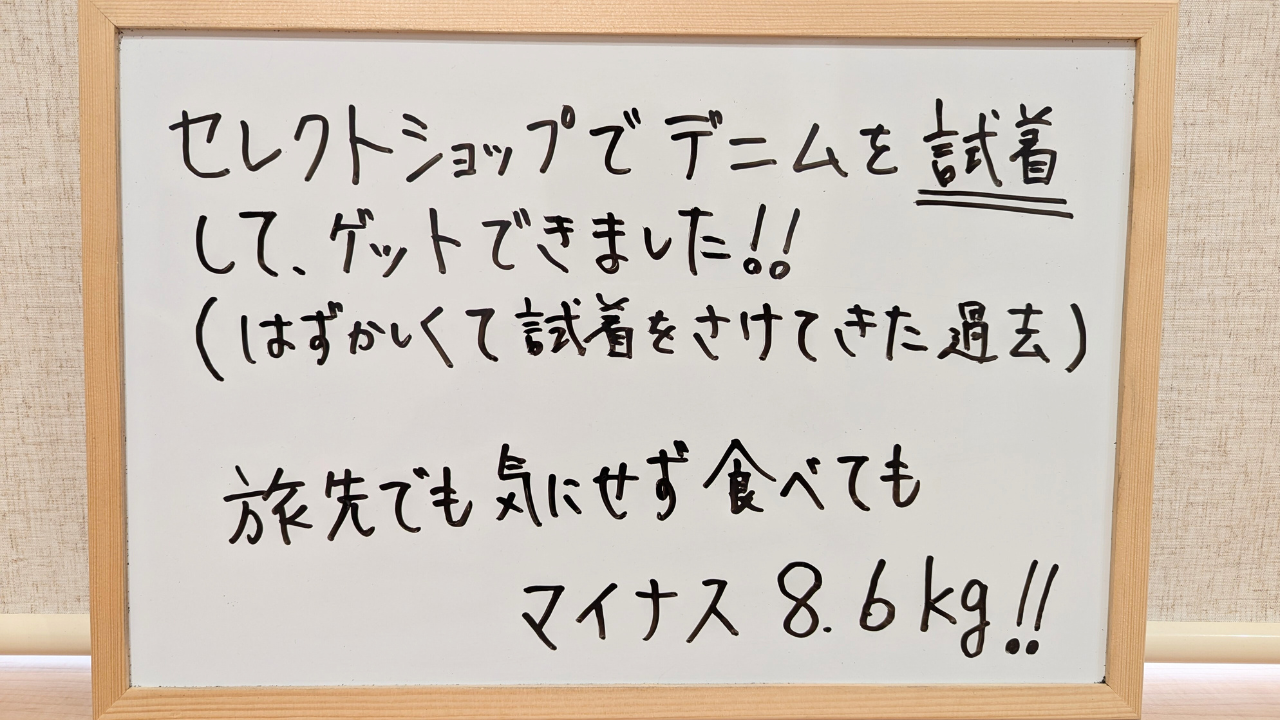 セレクトショップでデニムを試着
して、ゲットできました!!
(はずかしくて試着をさけてきた過去)
旅先でも気にせず食べても
マイナス 8.6kg!!